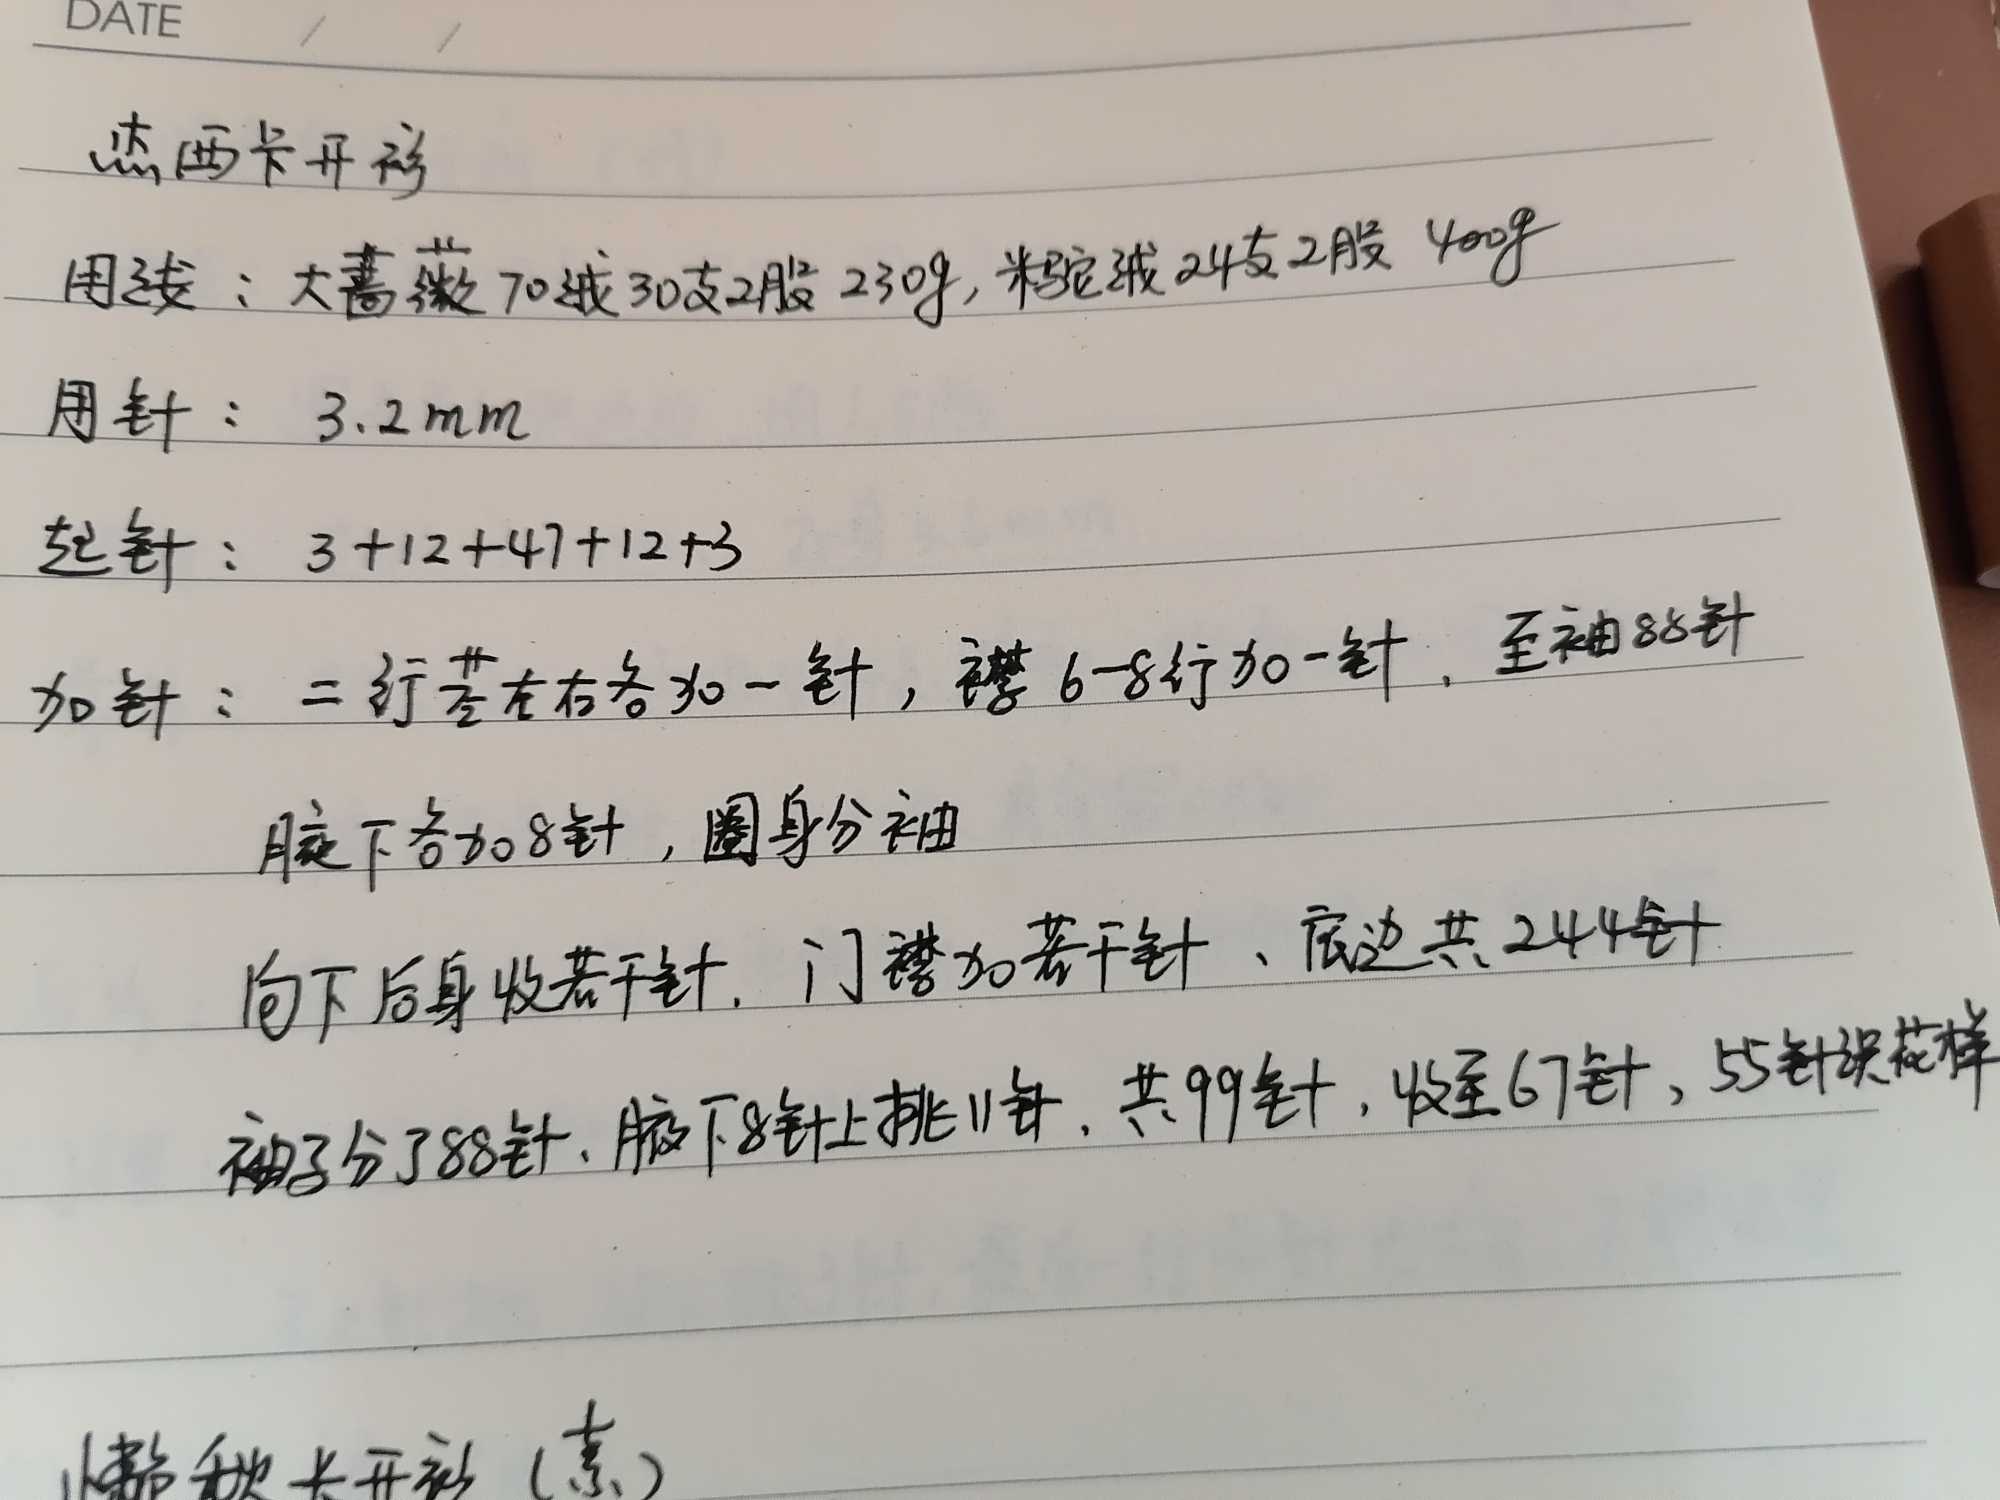 DATE / /
杰西卡开衫
用线：大蔷薇70绒30支2股 230g, 米驼绒24支2股 400g
用针：3.2mm
起针：3+12+47+12+3
加针：二行茎左右各加一针，襟6-8行加一针、至袖88针
腋下各加8针，圈身分袖
向下后身收若干针、门襟加若干针、底边共244针
袖子分了88针、腋下8针上挑11针、共99针，收至67针、55针织花样
懒秋长开衫（素）